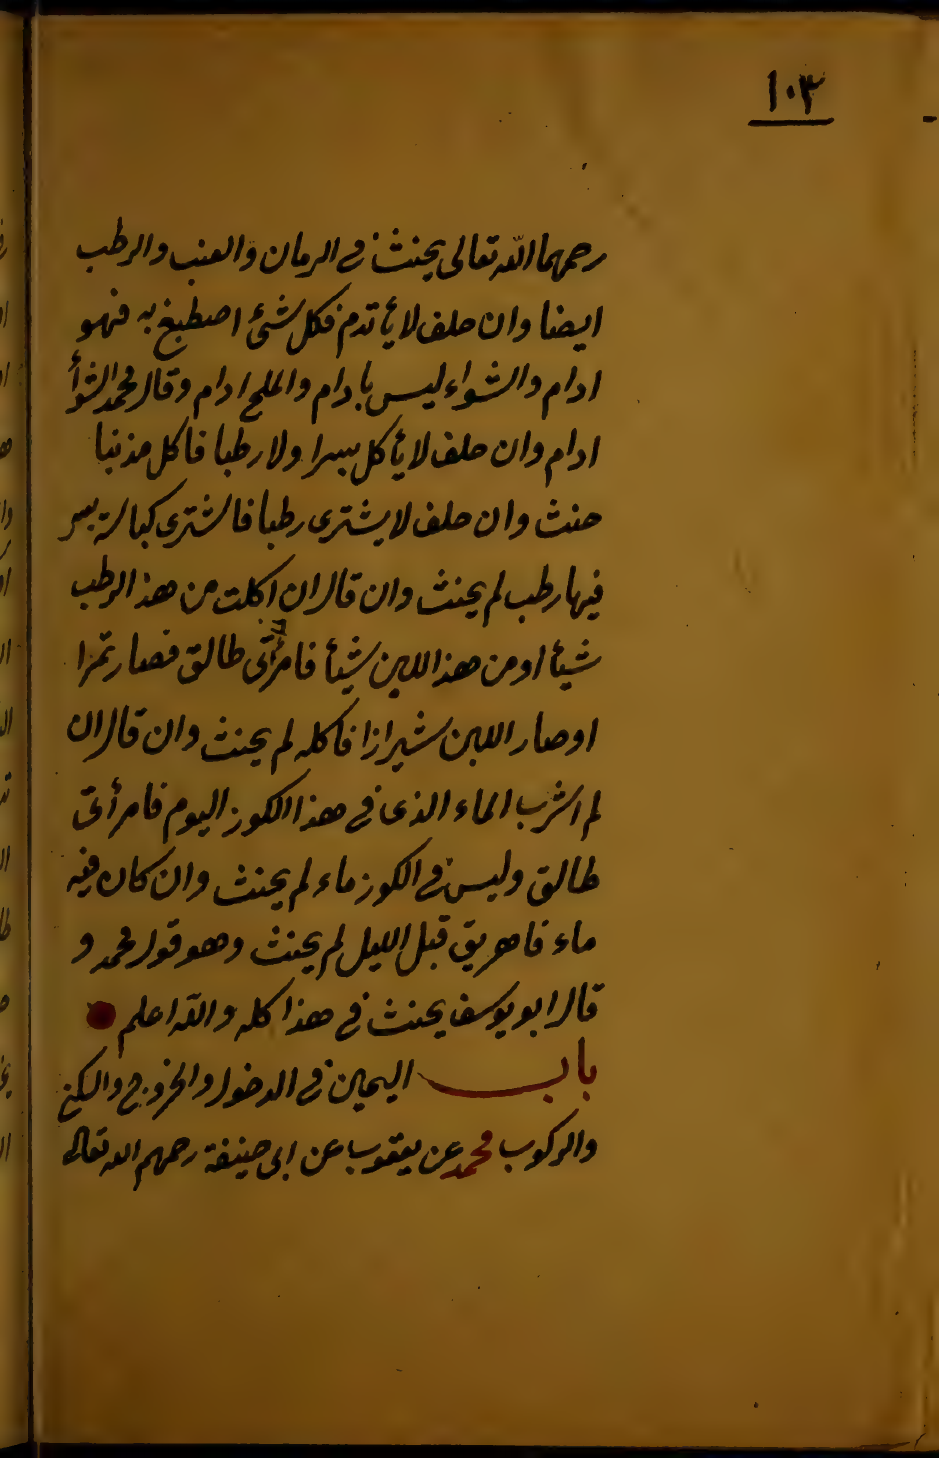 ١٠٣
رحمهما الله تعالى يحنث في الرمان والعنب والرطب
ايضا وان حلف لا يأتدم فكل شئ اصطبغ به فهو
ادام والشواء ليس بادام والملح ادام وقال محمد الشوأ
ادام وان حلف لا يأكل بسرا ولا رطبا فاكل مذنبا
حنث وان حلف لا يشترى رطبا فاشترى كباسة بسر
فيها رطب لم يحنث وان قال ان اكلت من هذ الرطب
شيأ او من هذ اللبن شيأ فامرأتى طالق فصار تمرا
او صار اللبن شيرازا فاكله لم يحنث وان قال ان
لم اشرب الماء الذى في هذا الكوز اليوم فامرأتى
طالق وليس في الكوز ماء لم يحنث وان كان فيه
ماء فاهريق قبل الليل لم يحنث وهو قول محمد و
قال ابو يوسف يحنث في هذا كله والله اعلم
باب اليمين في الدخول والخروج والسكنى
والركوب محمد عن يعقوب عن ابى حنيفة رحمهم الله تعالى